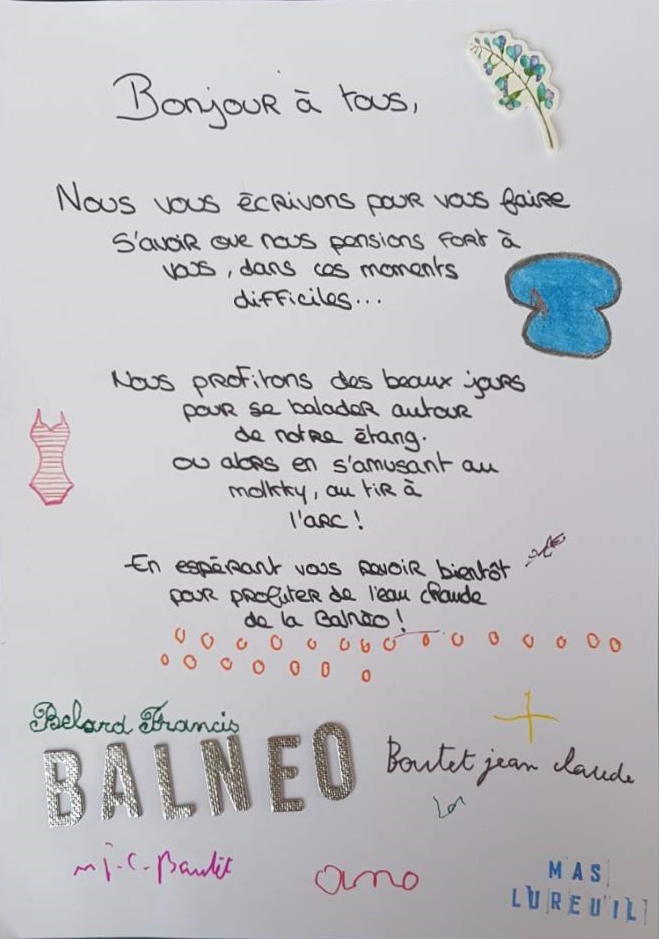 Bonjour à tous,
Nous vous écrivons pour vous faire
s'avoir que nous pensions fort à
vous, dans ces moments
difficiles...
Nous profitons des beaux jours
pour se balader autour
de notre étang.
ou alors en s'amusant au
molkky, au tir à
l'arc !
En espérant vous revoir bientôt
pour profiter de l'eau chaude
de la Balnéo !
Belard Francis
BALNEO
Boutet jean claude
ano
MAS
LUREUIL